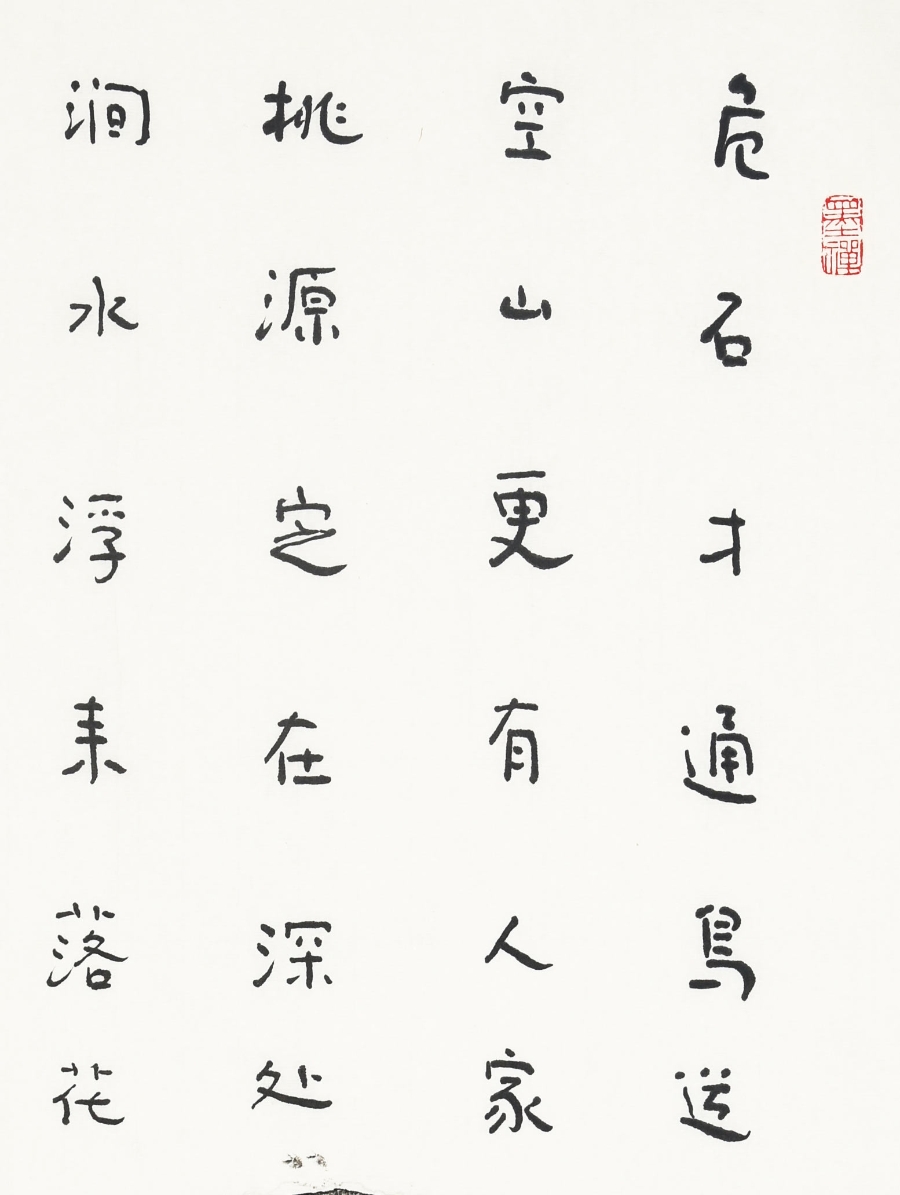 墨禪
危石才通鸟道
空山更有人家
桃源定在深处
涧水浮来落花